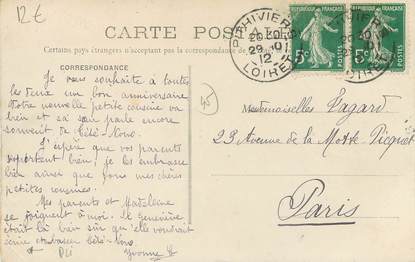 12€
CARTE POSTALE
Certains pays étrangers n'acceptent pas la correspondance de
RÉPUBLIQUE FRANÇAISE
RÉPUBLIQUE FRANÇAISE
5c
5c
PITHIVIERS
29 -01
12
LOIRET
CORRESPONDANCE
Je vous souhaite à toutes
les deux un bon anniversaire
Notre nouvelle petite cousine va
bien et sa sœur parle encore
souvent de bébé-Nono.
J'espère que vos parents
se portent bien, je les embrasse
bien ainsi que vous mes chères
petites cousines.
Mes parents et Madeleine
se joignent à moi. Geneviève
était là bien sûr qu'elle voudrait
embrasser bébé-Nono.
Yvonne
45
Mesdemoiselles Tagard
23 Avenue de la Motte-Picquet
Paris